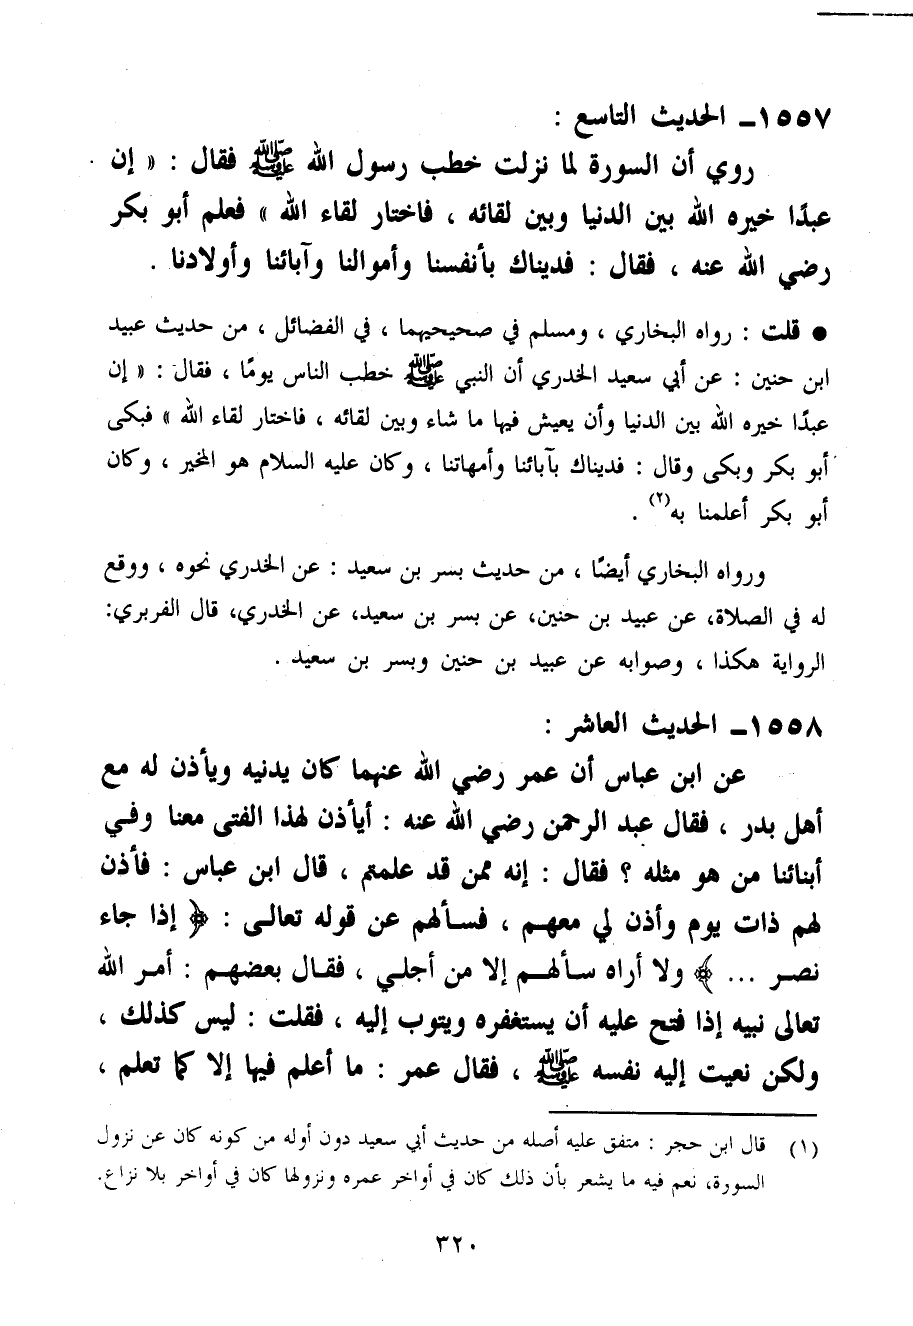 ١٥٥٧ـ الحديث التاسع :
روي أن السورة لما نزلت خطب رسول الله ﷺ فقال : « إن
عبدًا خيره الله بين الدنيا وبين لقائه ، فاختار لقاء الله » فعلم أبو بكر
رضي الله عنه ، فقال : فديناك بأنفسنا وأموالنا وآبائنا وأولادنا .
● قلت : رواه البخاري ، ومسلم في صحيحيهما ، في الفضائل ، من حديث عبيد
ابن حنين : عن أبي سعيد الخدري أن النبي ﷺ خطب الناس يومًا ، فقال : « إن
عبدًا خيره الله بين الدنيا وأن يعيش فيها ما شاء وبين لقائه ، فاختار لقاء الله » فبكى
أبو بكر وبكى وقال : فديناك بآبائنا وأمهاتنا ، وكان عليه السلام هو المخير ، وكان
أبو بكر أعلمنا به(٢) .
ورواه البخاري أيضًا ، من حديث بسر بن سعيد : عن الخدري نحوه ، ووقع
له في الصلاة، عن عبيد بن حنين، عن بسر بن سعيد، عن الخدري، قال الفربري:
الرواية هكذا ، وصوابه عن عبيد بن حنين وبسر بن سعيد .
١٥٥٨ـ الحديث العاشر :
عن ابن عباس أن عمر رضي الله عنهما كان يدنيه ويأذن له مع
أهل بدر ، فقال عبد الرحمن رضي الله عنه : أيأذن لهذا الفتى معنا وفي
أبنائنا من هو مثله ؟ فقال : إنه ممن قد علمتم ، قال ابن عباس : فأذن
لهم ذات يوم وأذن لي معهم ، فسألهم عن قوله تعالى : ﴿ إذا جاء
نصر ... ﴾ ولا أراه سألهم إلا من أجلي ، فقال بعضهم : أمر الله
تعالى نبيه إذا فتح عليه أن يستغفره ويتوب إليه ، فقلت : ليس كذلك ،
ولكن نعيت إليه نفسه ﷺ ، فقال عمر : ما أعلم فيها إلا كما تعلم ،
(١) قال ابن حجر : متفق عليه أصله من حديث أبي سعيد دون أوله من كونه كان عن نزول
السورة، نعم فيه ما يشعر بأن ذلك كان في أواخر عمره ونزولها كان في أواخر بلا نزاع.
٣٢٠